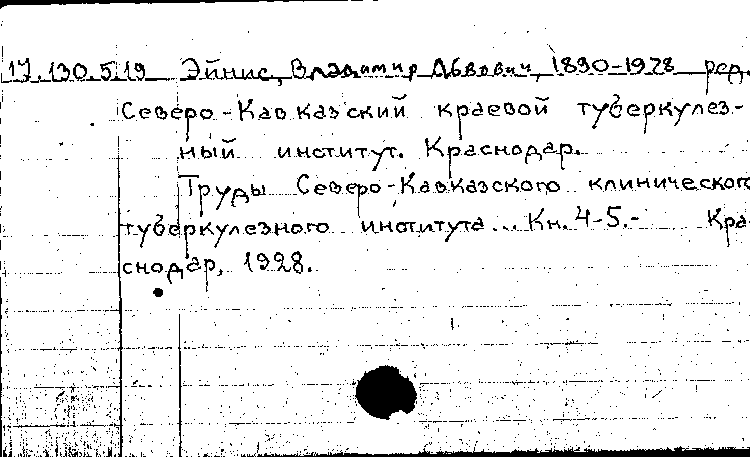 17.130.5.19 Эйнис, Владимир Львович, 1890-1978 ред.
Северо-Кавказский краевой туберкулез-
ный институт. Краснодар.
Труды Северо-Кавказского клинического
туберкулезного института... Кн. 4-5.- Кра
снодар, 1928.